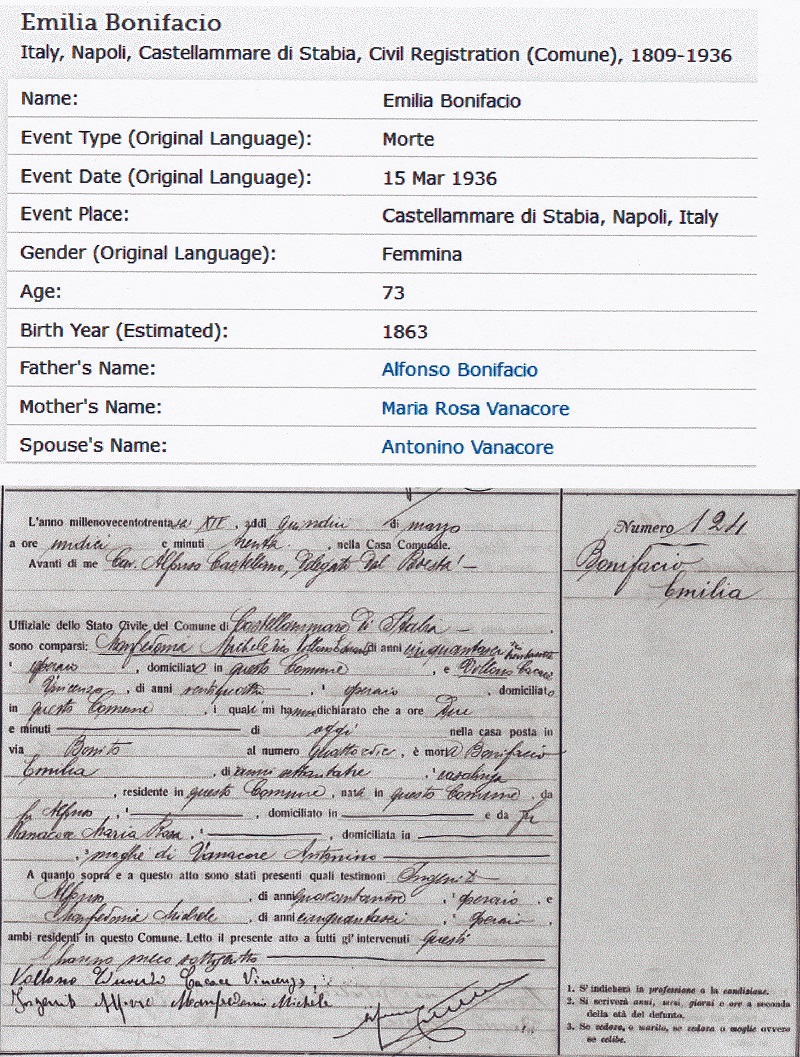 Emilia Bonifacio
Italy, Napoli, Castellammare di Stabia, Civil Registration (Comune), 1809-1936
Name: Emilia Bonifacio
Event Type (Original Language): Morte
Event Date (Original Language): 15 Mar 1936
Event Place: Castellammare di Stabia, Napoli, Italy
Gender (Original Language): Femmina
Age: 73
Birth Year (Estimated): 1863
Father's Name: Alfonso Bonifacio
Mother's Name: Maria Rosa Vanacore
Spouse's Name: Antonino Vanacore
L'anno millenovecentotrentasei XIV, addì quindici di marzo
a ore undici e minuti trenta, nella Casa Comunale.
Avanti di me Cav. Alfonso Delegato dal Podestà
Uffiziale dello Stato Civile del Comune di Castellammare di Stabia
sono comparsi: Manfredonia Michele di anni cinquantasei
operaio, domiciliato in questo Comune, e
Vincenzo, di anni ventiquattro, operaio, domiciliato
in questo Comune, i quali mi hanno dichiarato che a ore due
e minuti di oggi nella casa posta in
via Bonito al numero quattordici, è morta Bonifacio
Emilia, di anni settantatre, casalinga
, residente in questo Comune, nata in questo Comune, da
fu Alfonso, , domiciliato in e da fu
Vanacore Maria Rosa, , domiciliata in
, moglie di Vanacore Antonino
A quanto sopra e a questo atto sono stati presenti quali testimoni Ingenito
Alfonso, di anni quarantanove, operaio, e
Manfredonia Michele, di anni cinquantasei, operaio,
ambi residenti in questo Comune. Letto il presente atto a tutti gl' intervenuti questi
l'hanno meco sottoscritto
Cacace Vincenzo
Ingenito Manfredonia Michele
Numero 124
Bonifacio
Emilia
1. S'indicherà la professione o la condizione.
2. Si scriverà anni, mesi, giorni e ore a seconda
della età del defunto.
3. Se vedovo, o marito, se vedova o moglie ovvero
se celibe.